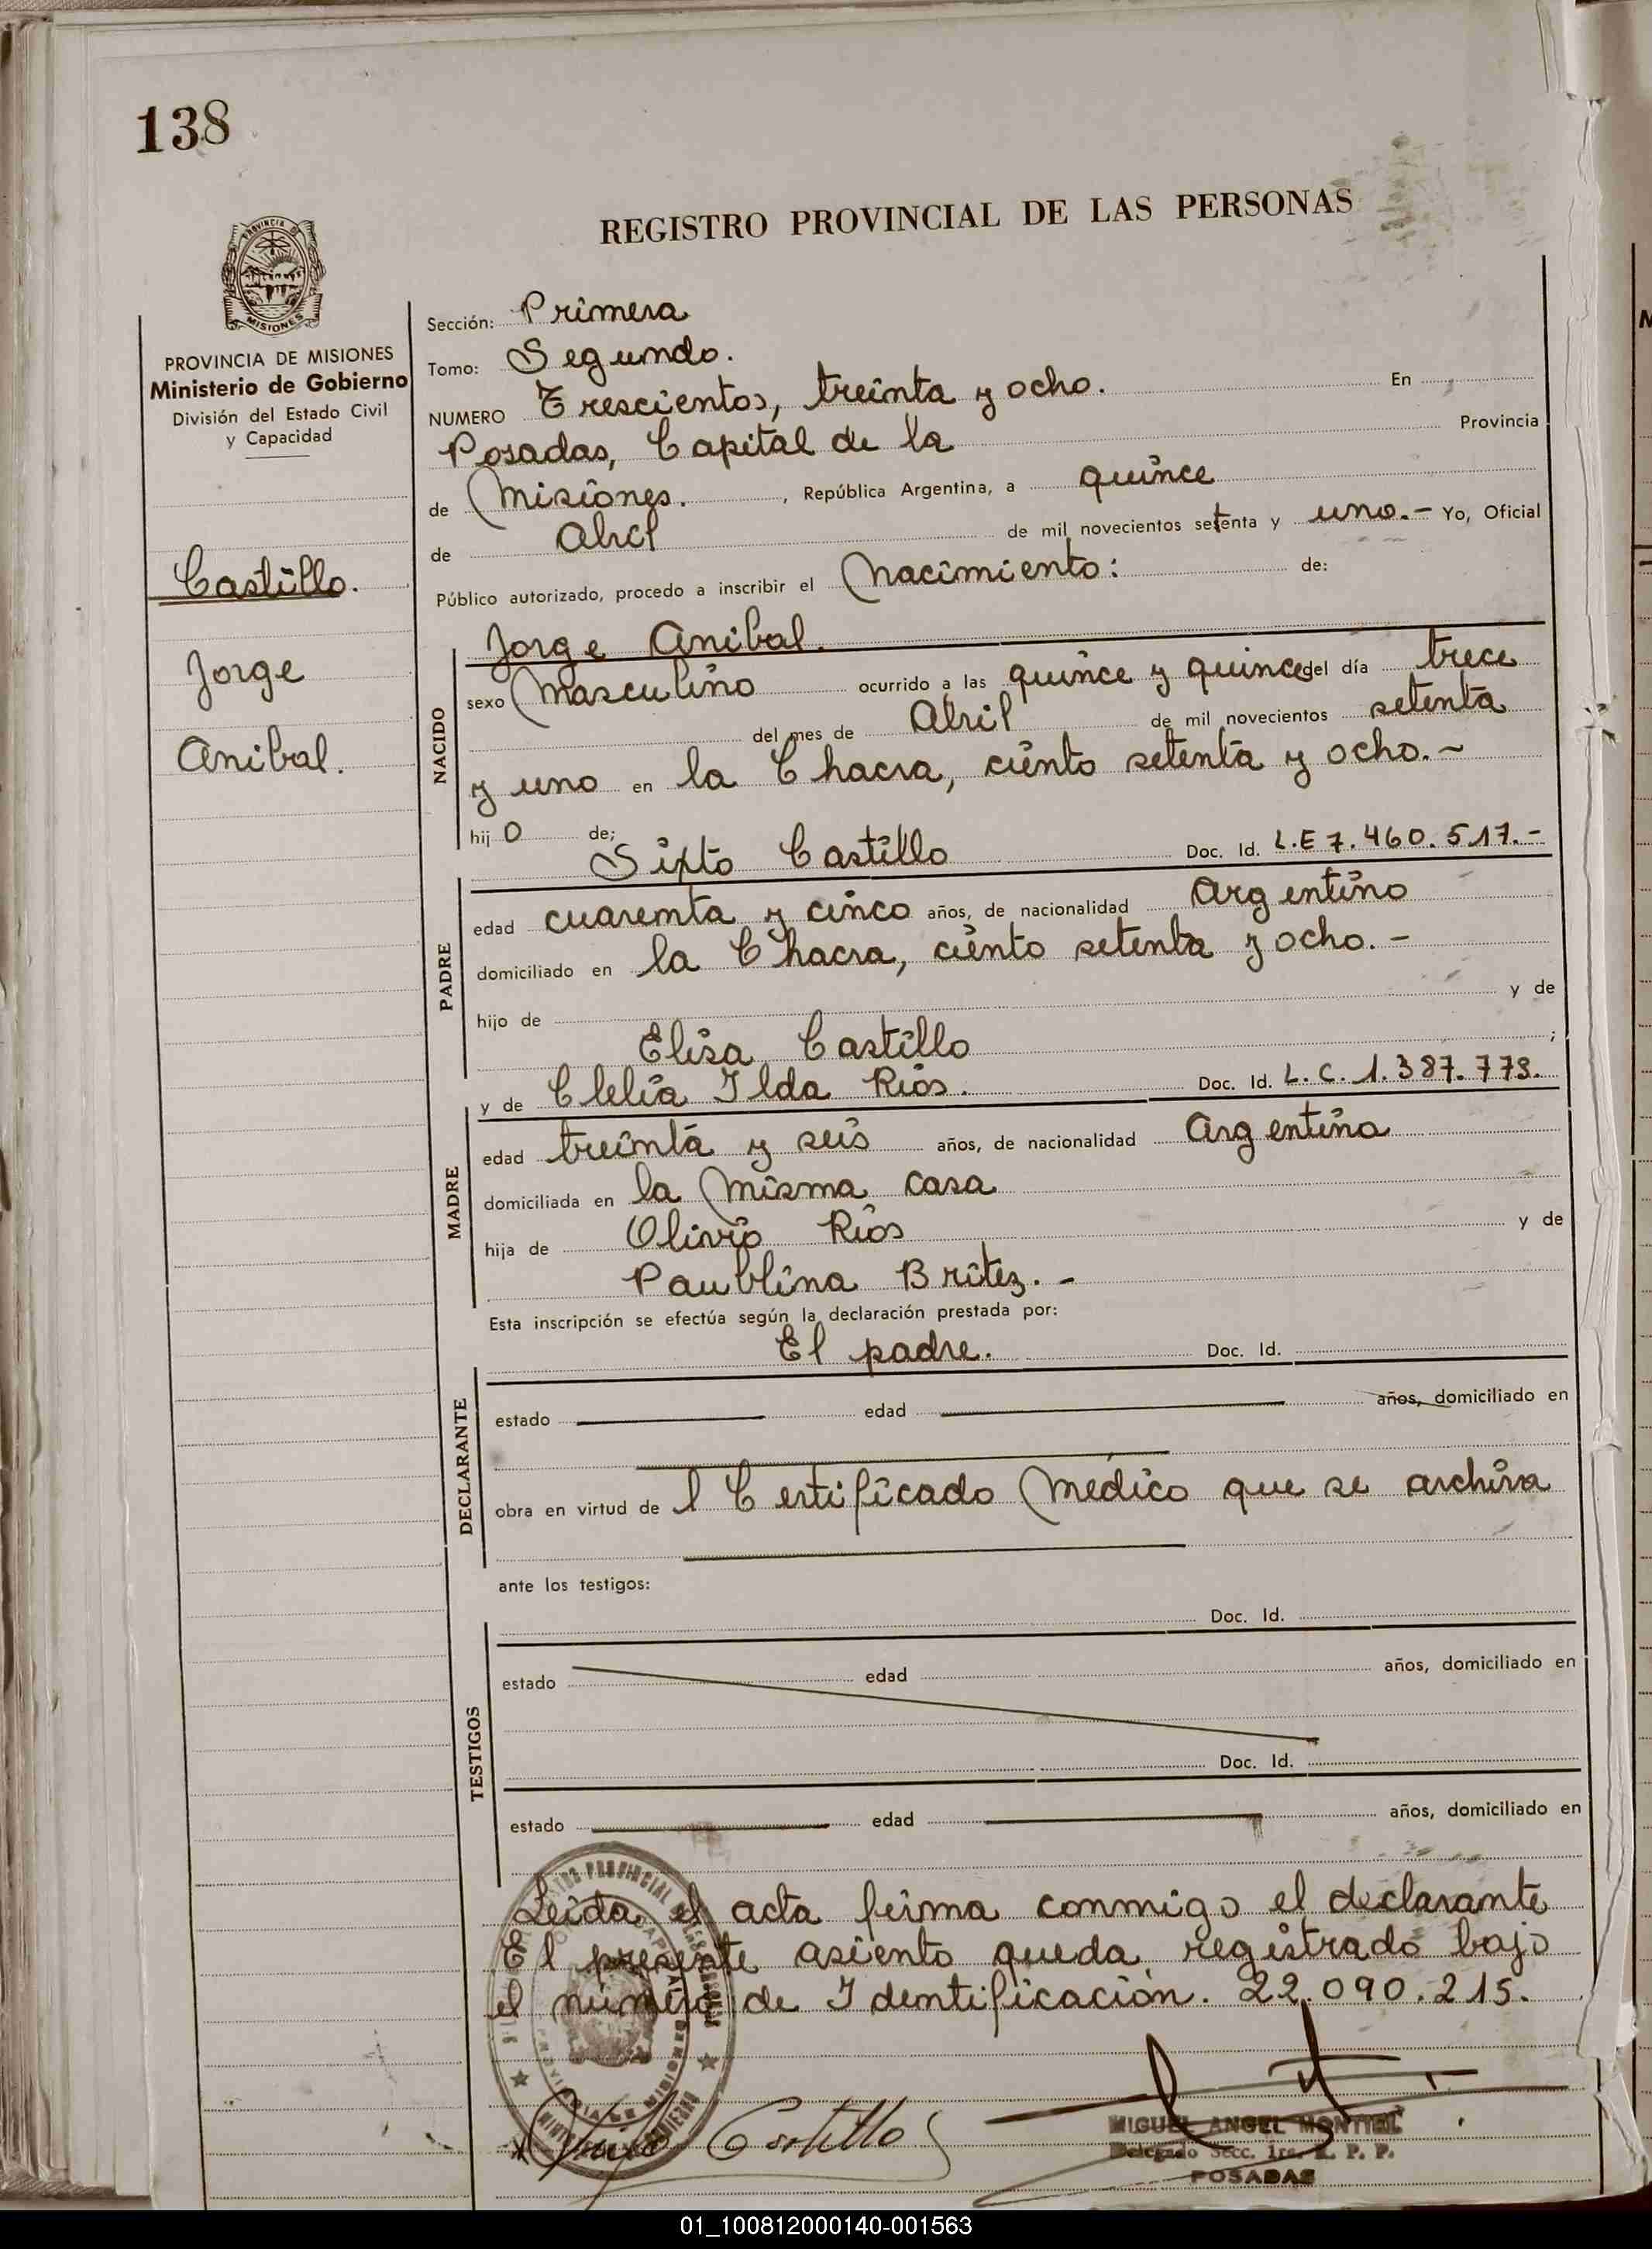 138
REGISTRO PROVINCIAL DE LAS PERSONAS
PROVINCIA DE MISIONES
MISIONES
PROVINCIA DE MISIONES
Ministerio de Gobierno
División del Estado Civil
y Capacidad
Castillo.
Jorge
Anibal.
Sección: Primera
Tomo: Segundo.
NUMERO Trescientos, treinta y ocho. En
Posadas, Capital de la Provincia
de Misiones. , República Argentina, a quince
de Abril de mil novecientos setenta y uno.- Yo, Oficial
Público autorizado, procedo a inscribir el Nacimiento: de:
NACIDO
Jorge Anibal.
sexo Masculino ocurrido a las quince y quince del día trece
del mes de Abril de mil novecientos setenta
y uno en la Chacra, ciento setenta y ocho.-
hij o de;
Sixto Castillo Doc. Id. L.E 7.460.517.-
PADRE
edad cuarenta y cinco años, de nacionalidad Argentino
domiciliado en la Chacra, ciento setenta y ocho.-
hijo de y de
Elisa Castillo ;
y de Clelia Ilda Rios. Doc. Id. L.C. 1.387.773.
MADRE
edad treinta y seis años, de nacionalidad Argentina
domiciliada en la misma casa
hija de Olivio Rios y de
Paublina Britez.-
Esta inscripción se efectúa según la declaración prestada por:
El padre. Doc. Id.
DECLARANTE
estado edad años, domiciliado en
obra en virtud de l Certificado Médico que se archiva
ante los testigos:
Doc. Id.
TESTIGOS
estado edad años, domiciliado en
Doc. Id.
estado edad años, domiciliado en
Leida el acta firma conmigo el declarante
El presente asiento queda registrado bajo
el número de Identificación. 22.090.215.
Castillo
MIGUEL ANGEL MONTIEL
Delegado Secc. 1ra. R. P. P.
POSADAS
01_100812000140-001563